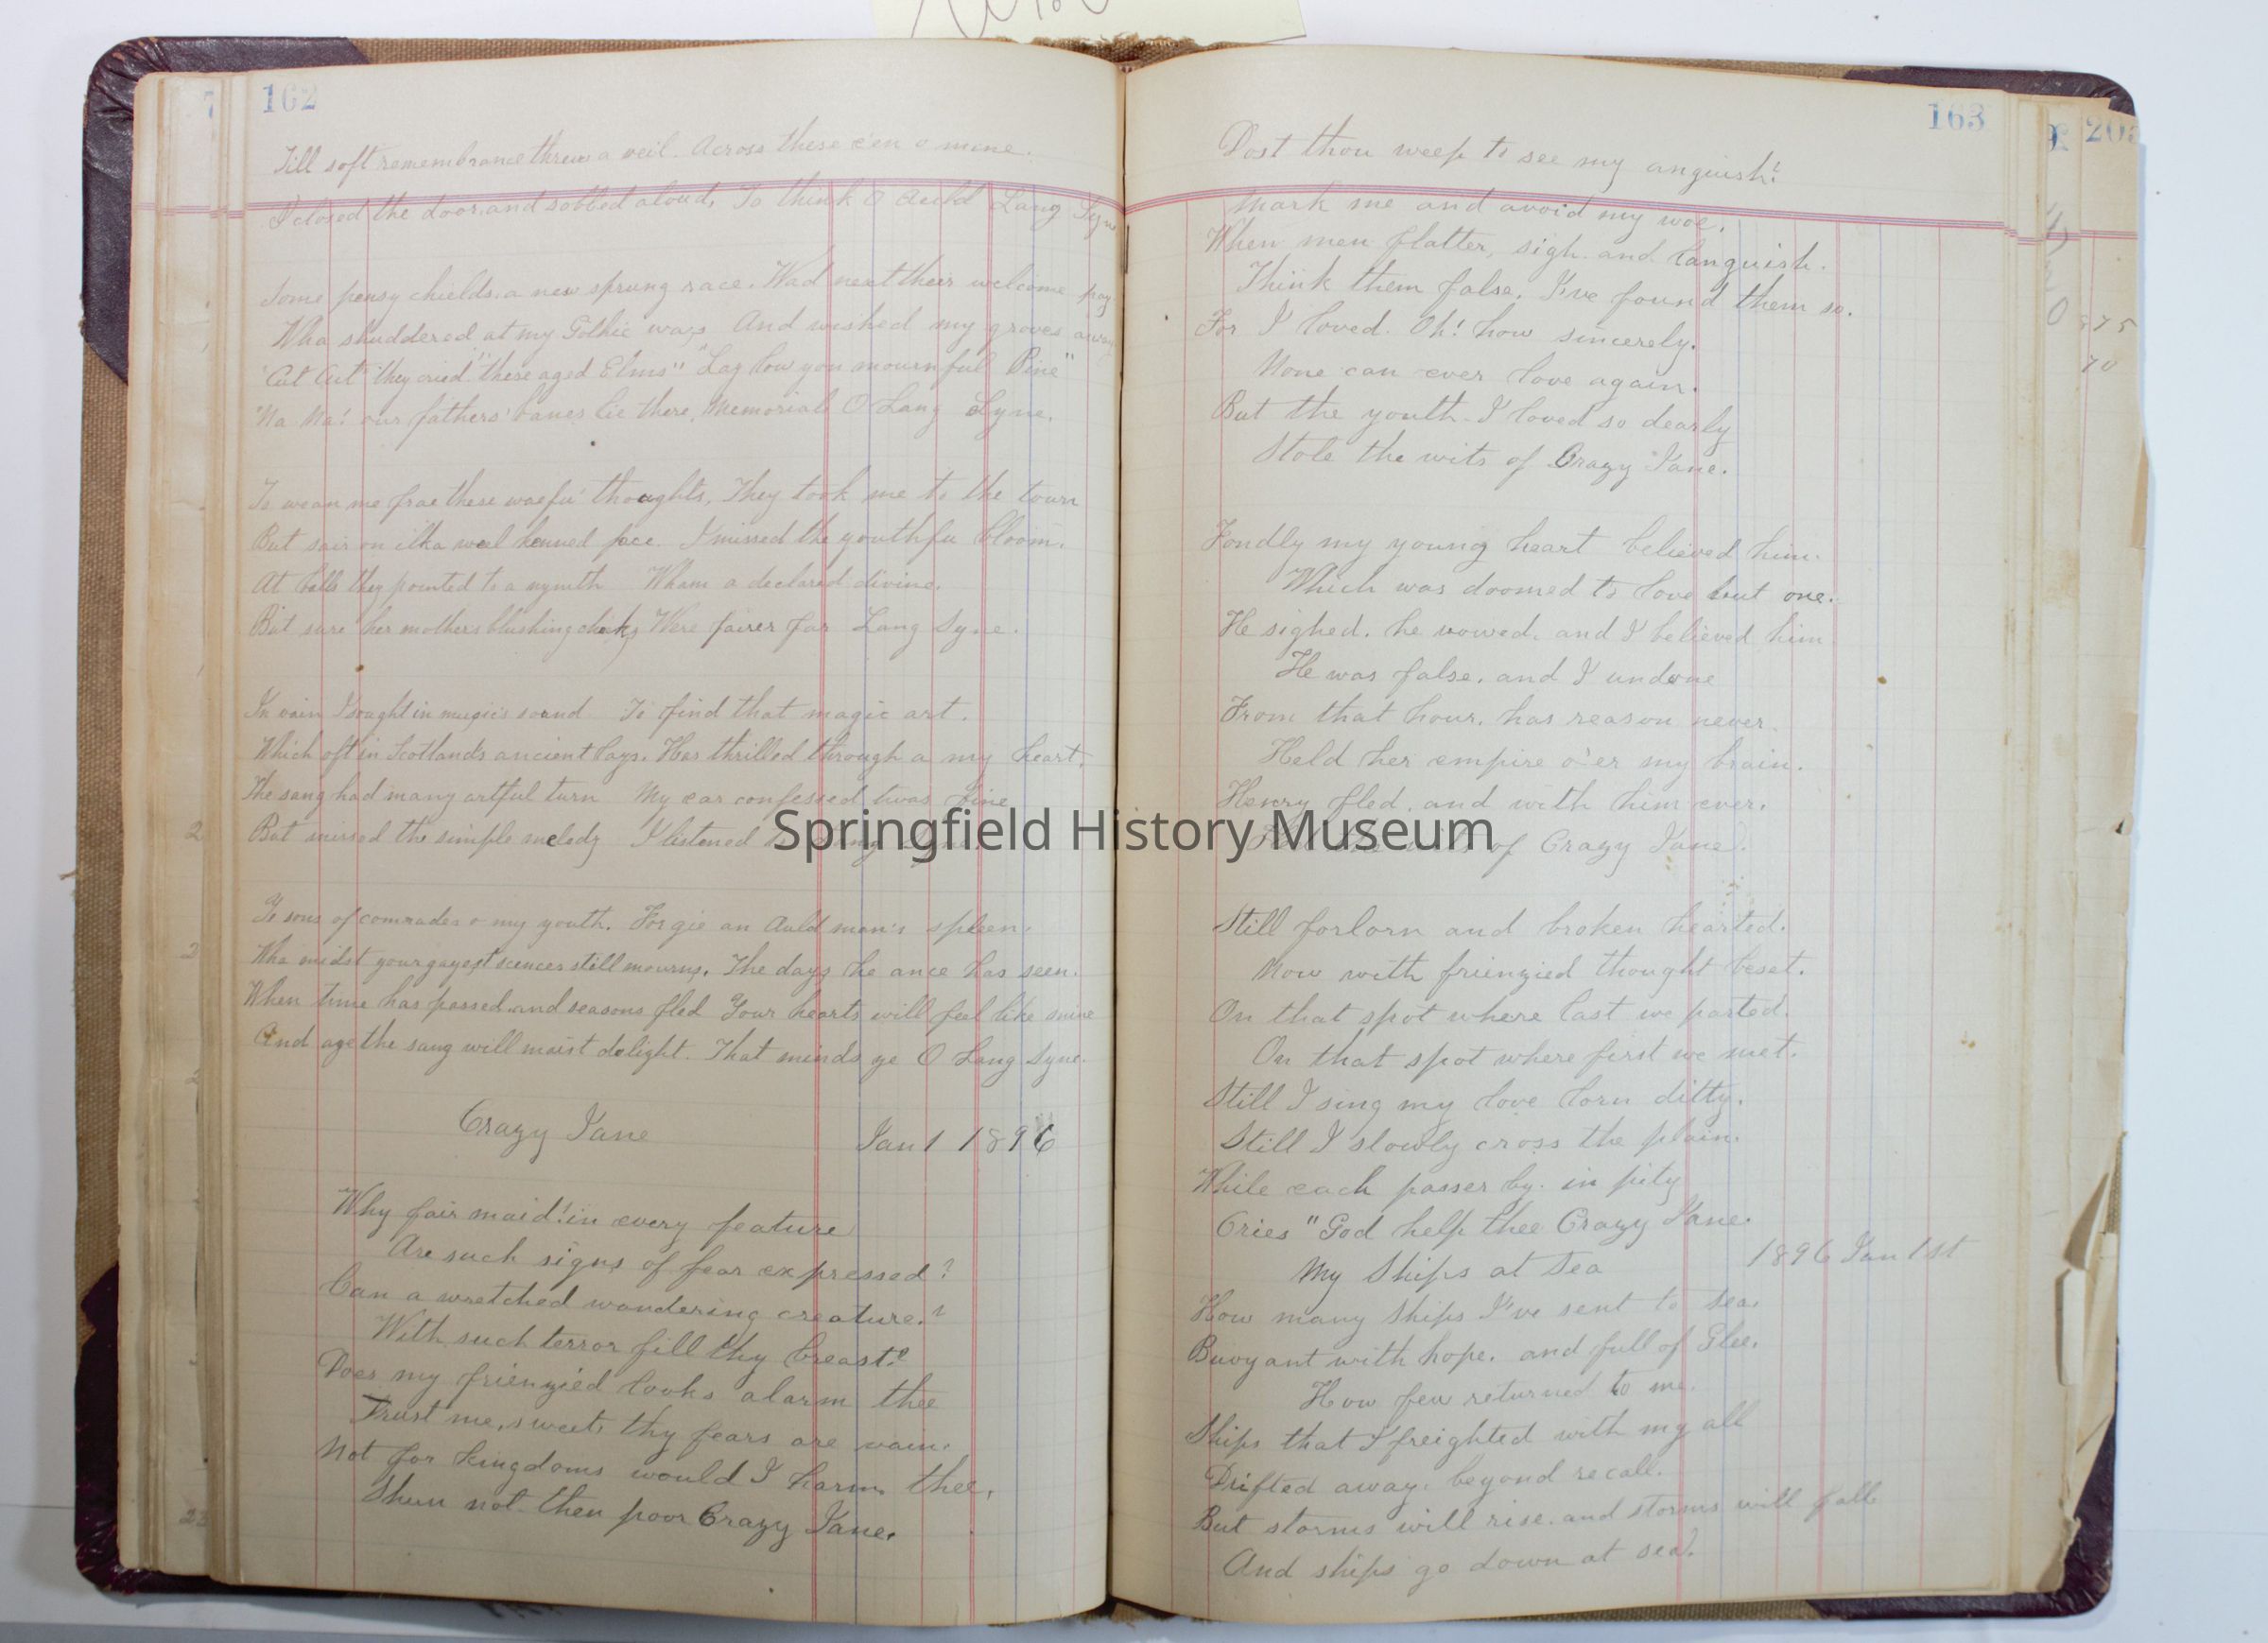 162
Till soft remembrance threw a veil. Across these een o mine.
I closed the door, and sobbed aloud, To think O Auld Lang Syne
Some pensy chields, a new sprung race. Wad neat their welcome pay
Wha shuddered at my Gothic wa's And wished my groves away
"Cut Cut" they cried "these aged Elms" "Lay low yon mournful Pine"
Na Na! our fathers' banes lie there, Memorials O Lang Syne.
To wean me frae these waefu' thoughts, They took me to the town
But sair on ilka weel kenned face I missed the youthfu bloom.
At balls they pointed to a nymth Wham a declared divine.
But sure her mothers blushing cheeks Were fairer far Lang Syne.
In vain I sought in mugic's sound To find that magic art.
Which oft in Scotlands ancient lays. Has thrilled through a my heart.
The sang had many artful turn My ear confessed twas fine
But missed the simple melody I listened
Ye sons of comrades o my youth. Forgie an Auld man's spleen.
Wha midst your gayest scences still mourns. The days he ance has seen.
When time has passed and seasons fled Your hearts will feel like mine
And aye the sang will maist delight. That minds ye O Lang Syne.
Crazy Jane Jan 1 1896
Why fair maid! in every feature
Are such signs of fear expressed?
Can a wretched wandering creature?
With such terror fill thy breast?
Does my frienzied looks alarm thee
Trust me, sweet, thy fears are vain.
Not for kingdoms would I harm thee,
Shun not then poor Crazy Jane.
163
Dost thou weep to see my anguish?
Mark me and avoid my woe.
When men flatter, sigh and languish.
Think them false, I've found them so.
For I loved. Oh! how sincerely.
None can ever love again.
But the youth I loved so dearly
Stole the wits of Crazy Jane.
Fondly my young heart believed him.
Which was doomed to love but one.
He sighed, he vowed, and I believed him
He was false, and I undone
From that hour, has reason never
Held her empire o'er my brain.
Henry fled, and with him ever.
of Crazy Jane.
Still forlorn and broken hearted.
Now with frienzied thought beset.
On that spot where last we parted.
On that spot where first we met.
Still I sing my love lorn ditty.
Still I slowly cross the plain.
While each passer by, in pity
Cries "God help thee Crazy Jane.
My Ships at Sea 1896 Jan 1st
How many Ships I've sent to Sea.
Buoyant with hope, and full of Glee.
How few returned to me.
Ships that I freighted with my all
Drifted away, beyond recall.
But storms will rise, and storms will fall
And ships go down at sea.
875
70
Springfield History Museum